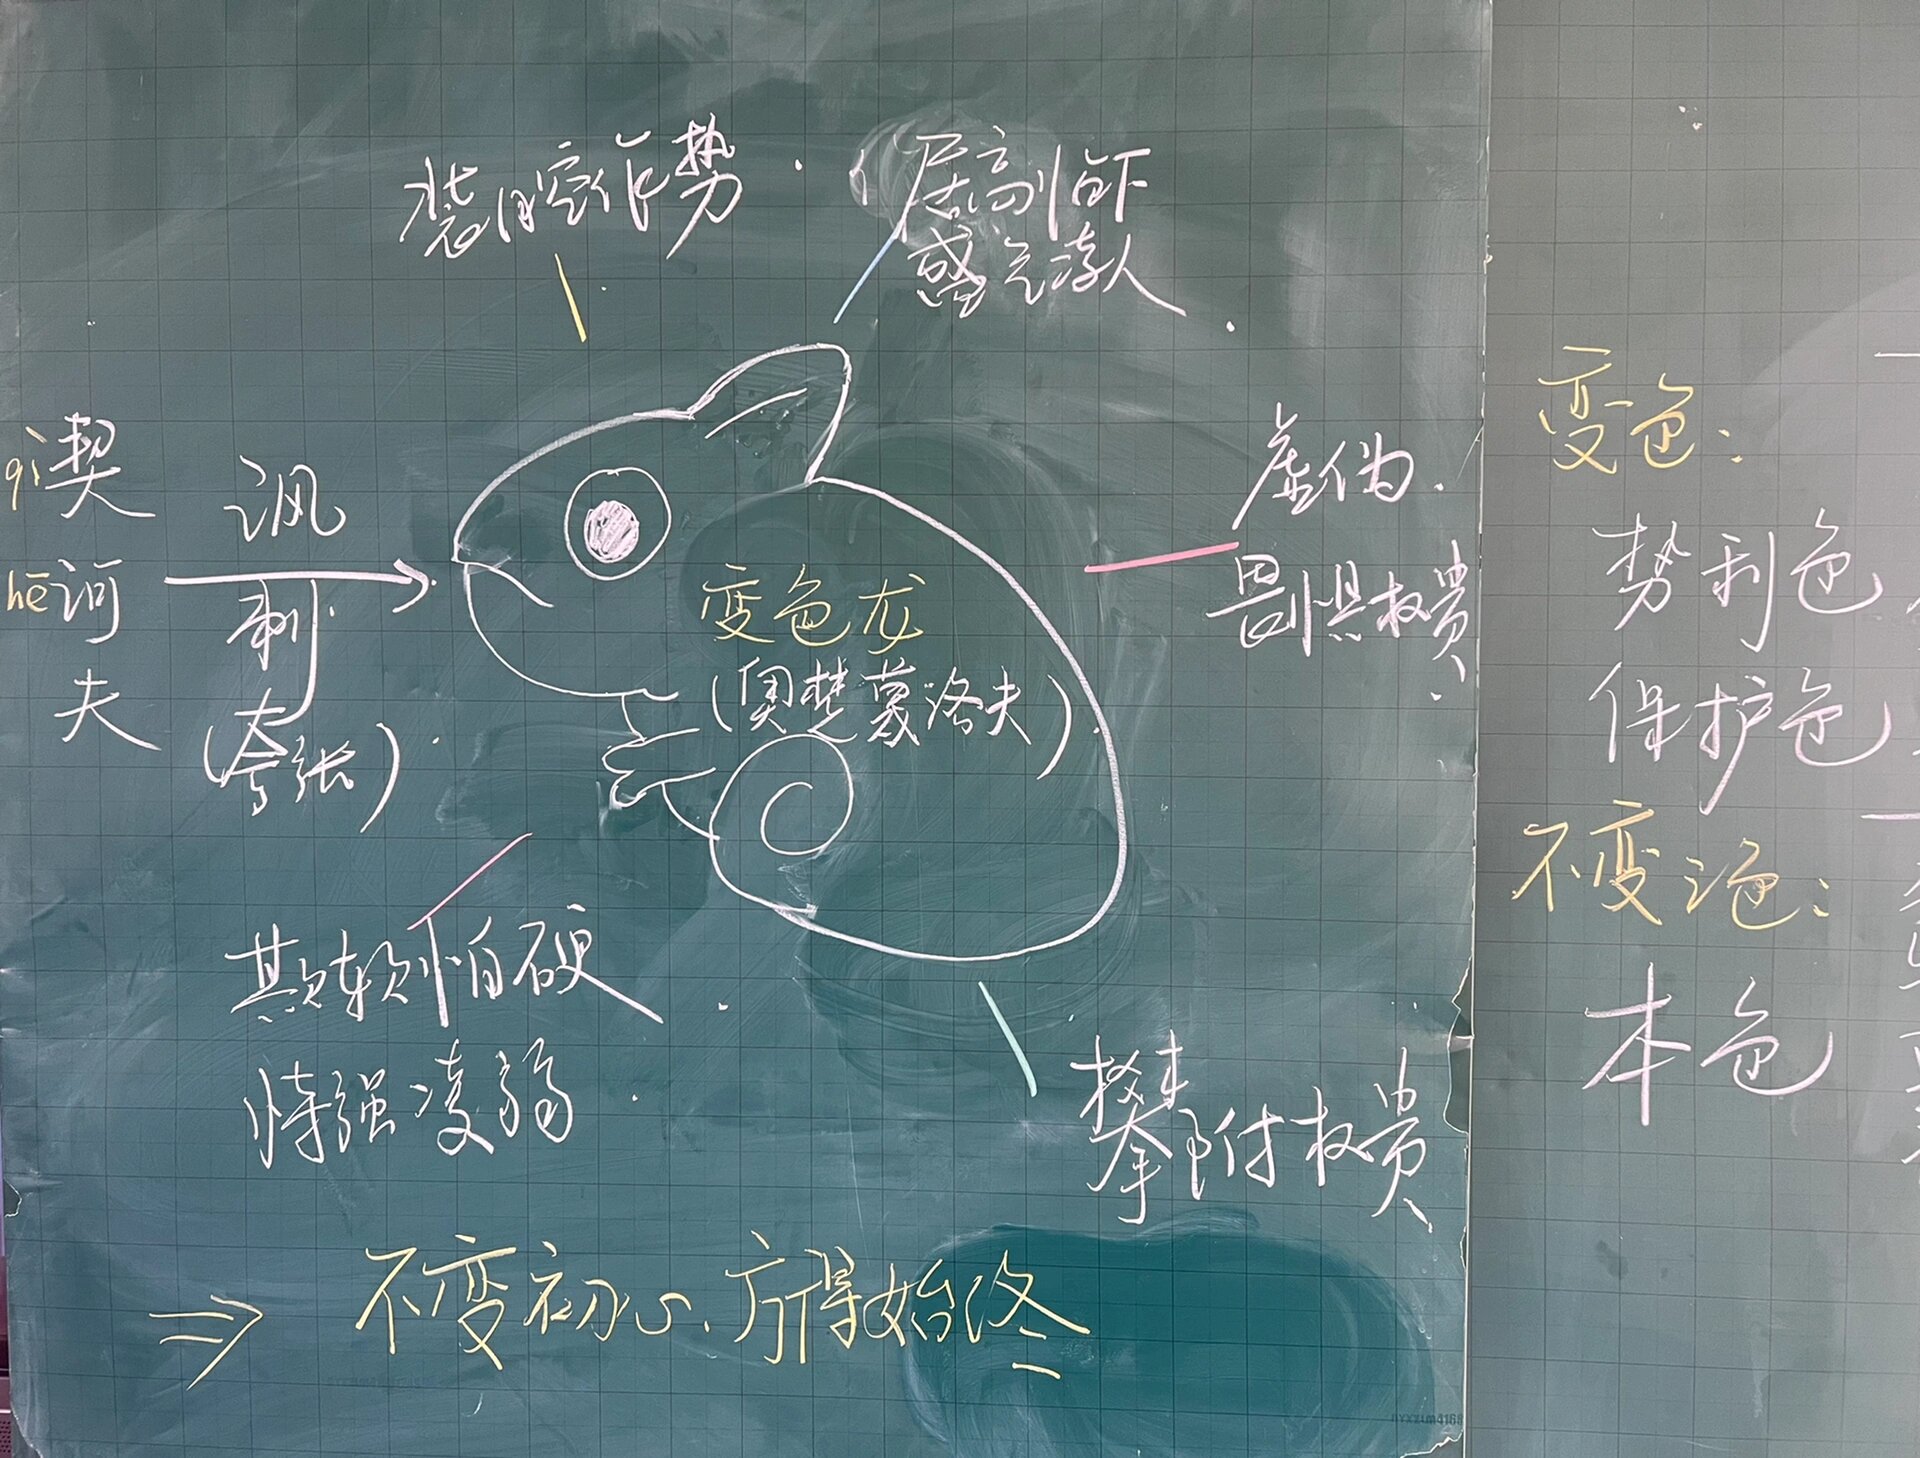 装腔作势
居高临下
盛气凌人
qì契
hē诃
夫
讽
刺
(夸张)
变色龙
(奥楚蔑洛夫)
虚伪
畏惧权贵
欺软怕硬
恃强凌弱
攀附权贵
⇒ 不变初心、方得始终
变色:
势利色
保护色
不变色:
本色